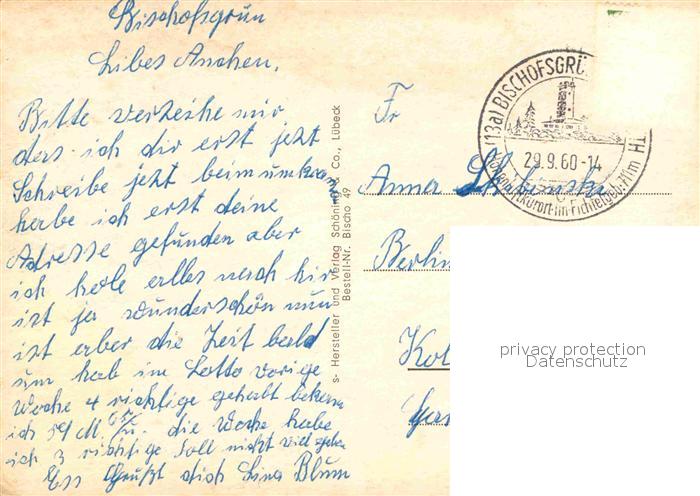 Bischofsgrün
Libes Anchen,
Bitte verzeihe mir
das ich dir erst jetzt
Schreibe jetzt beim umkramen
habe ich erst deine
Adresse gefunden aber
ich hole alles nach hir
ist ja wunderschön nun
ist aber die Zeit bald
um hab im Lotto vorige
Woche 4 richtige gehabt bekam
ich 59 M. die Woche habe
ich 3 richtige Soll nicht viel geben
Ess Grüßt dich Lina Blum
s- Hersteller und Verlag Schöning & Co., Lübeck
Bestell-Nr. Bischo 49
Fr
Anna
Berlin
(13a) BISCHOFSGRÜ
29.9.60-14
Höhenluftkurort im Fichtelgeb. 711m
privacy protection
Datenschutz